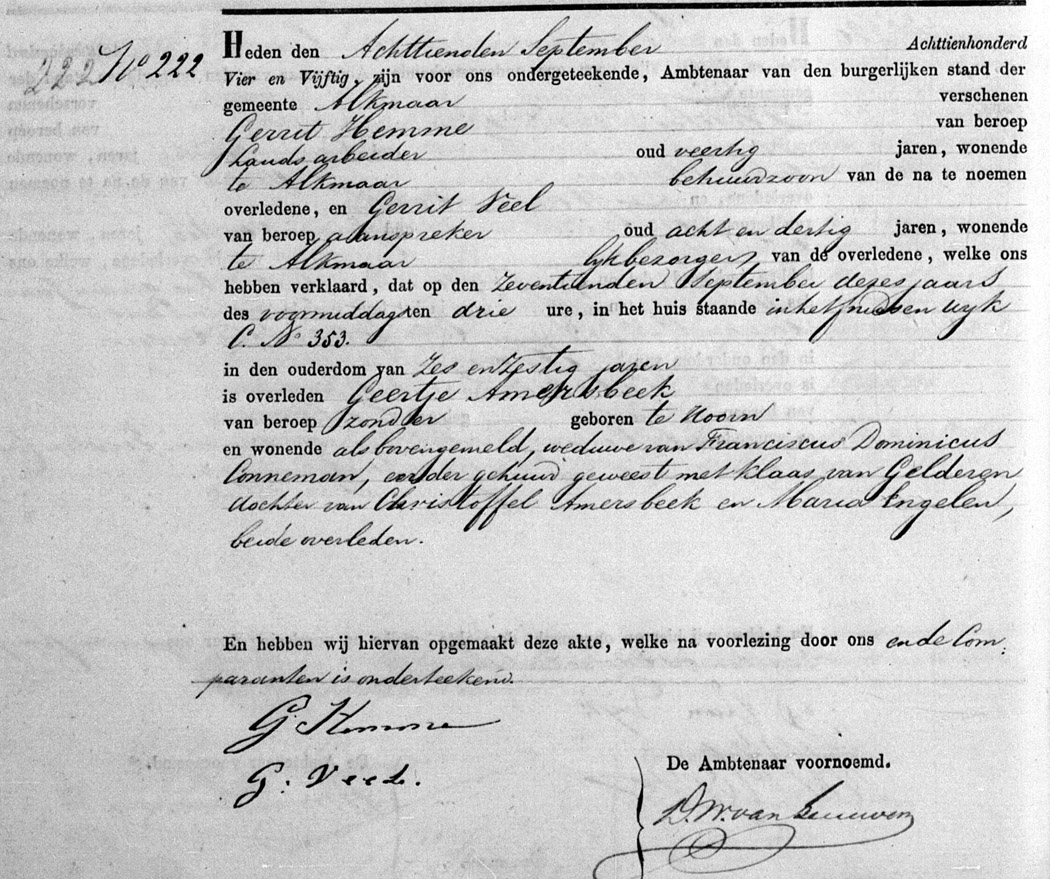 222 No 222
Heden den Achttienden September Achttienhonderd
Vier en Vijftig, zijn voor ons ondergeteekende, Ambtenaar van den burgerlijken stand der
gemeente Alkmaar verschenen
Gerrit Hemme van beroep
Landsarbeider oud veertig jaren, wonende
te Alkmaar behuwdzoon van de na te noemen
overledene, en Gerrit Veel
van beroep aanspreker oud acht en dertig jaren, wonende
te Alkmaar lijkbezorger van de overledene, welke ons
hebben verklaard, dat op den Zeventienden September dezes jaars
des voormiddags ten drie ure, in het huis staande in het wyk
C. No 353.
in den ouderdom van Zes en Zestig jaren
is overleden Geertje Amersbeek
van beroep zonder geboren te Hoorn
en wonende als bovengemeld, weduwe van Franciscus Dominicus
Conneman, eerder gehuwd geweest met Klaas van Gelderen
dochter van Christoffel Amersbeek en Maria Engelen,
beide overleden.
En hebben wij hiervan opgemaakt deze akte, welke na voorlezing door ons en de Com-
paranten is onderteekend.
G. Hemme
G. Veel.
De Ambtenaar voornoemd.
D. W. van Leeuwen